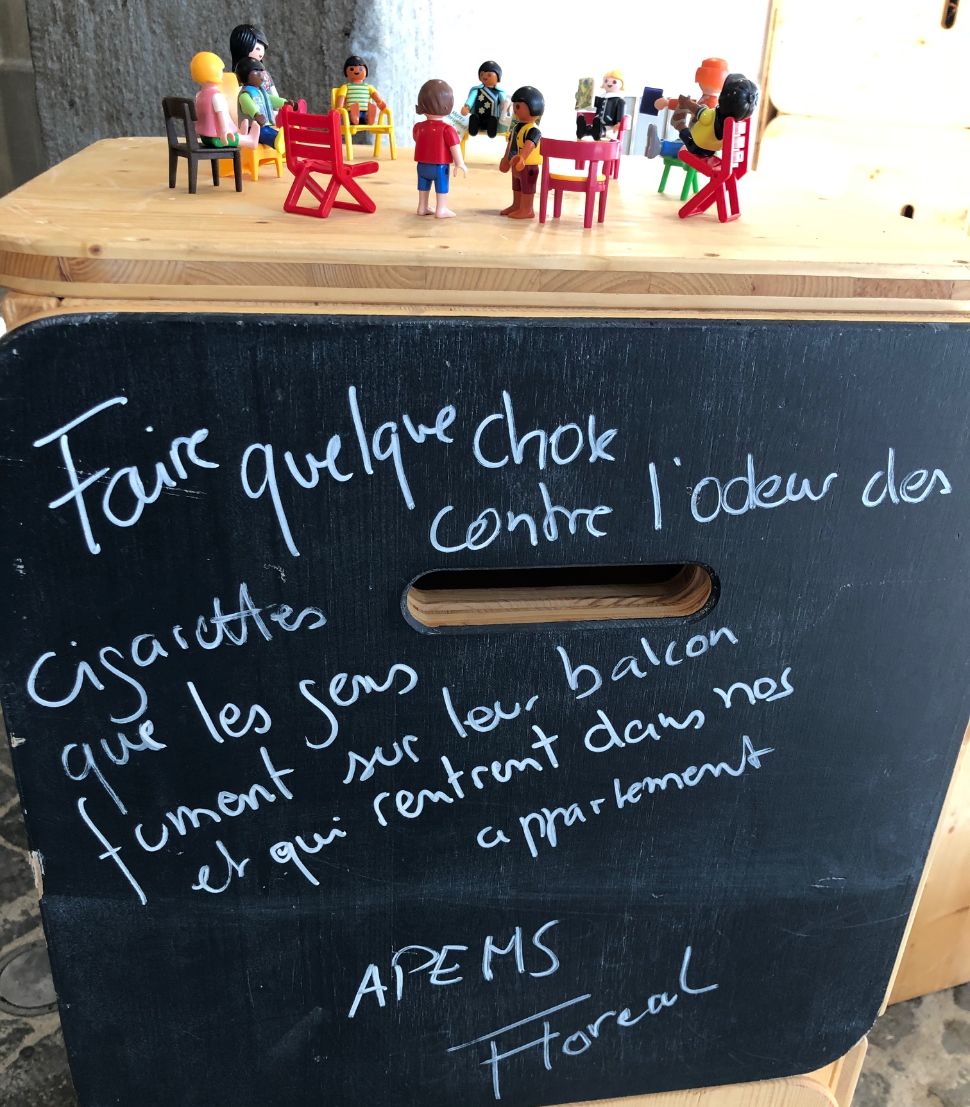 Faire quelque chose
contre l'odeur des
cigarettes
que les gens
fument sur leur balcon
et qui rentrent dans nos
appartement
APEMS
Floreal